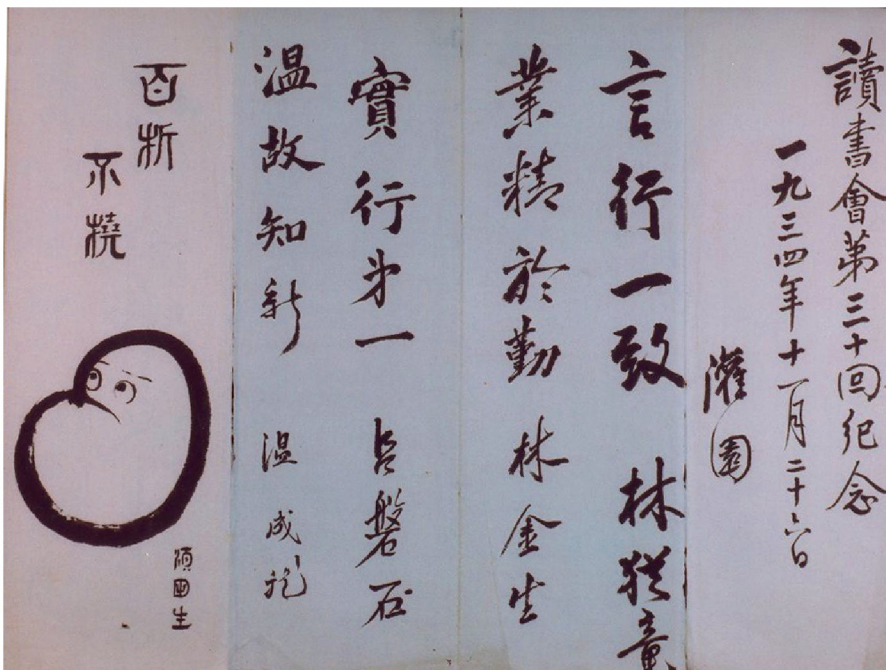 讀書會第三十回紀念
一九三四年十一月二十六日
灌園
言行一致 林猶章
業精於勤 林金生
實行㐧一 呂磐石
温故知新 温成
百折
不撓
須田生